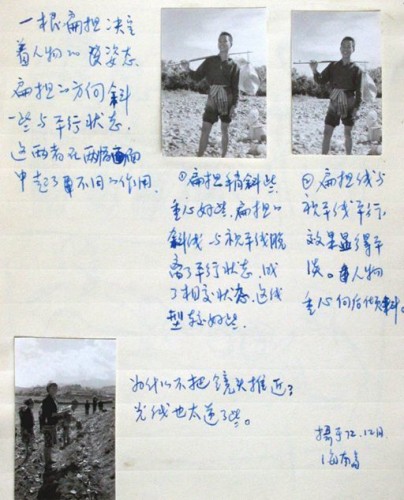 一根扁担决定
着人物的姿态
扁担的方向斜
一些与平行状态.
这两者在两幅画面
中起了不同的作用.
①扁担稍斜些.
重心好些.扁担的
斜线与视平线脱
离了平行状态.成
了相交状态.这线
型较好些.
②扁担线与
视平线平行.
效果显得平
淡。且人物
重心向后倾斜。
为什么不把镜头推近了
光线也太逆了些。
摄于72.12月
海南岛